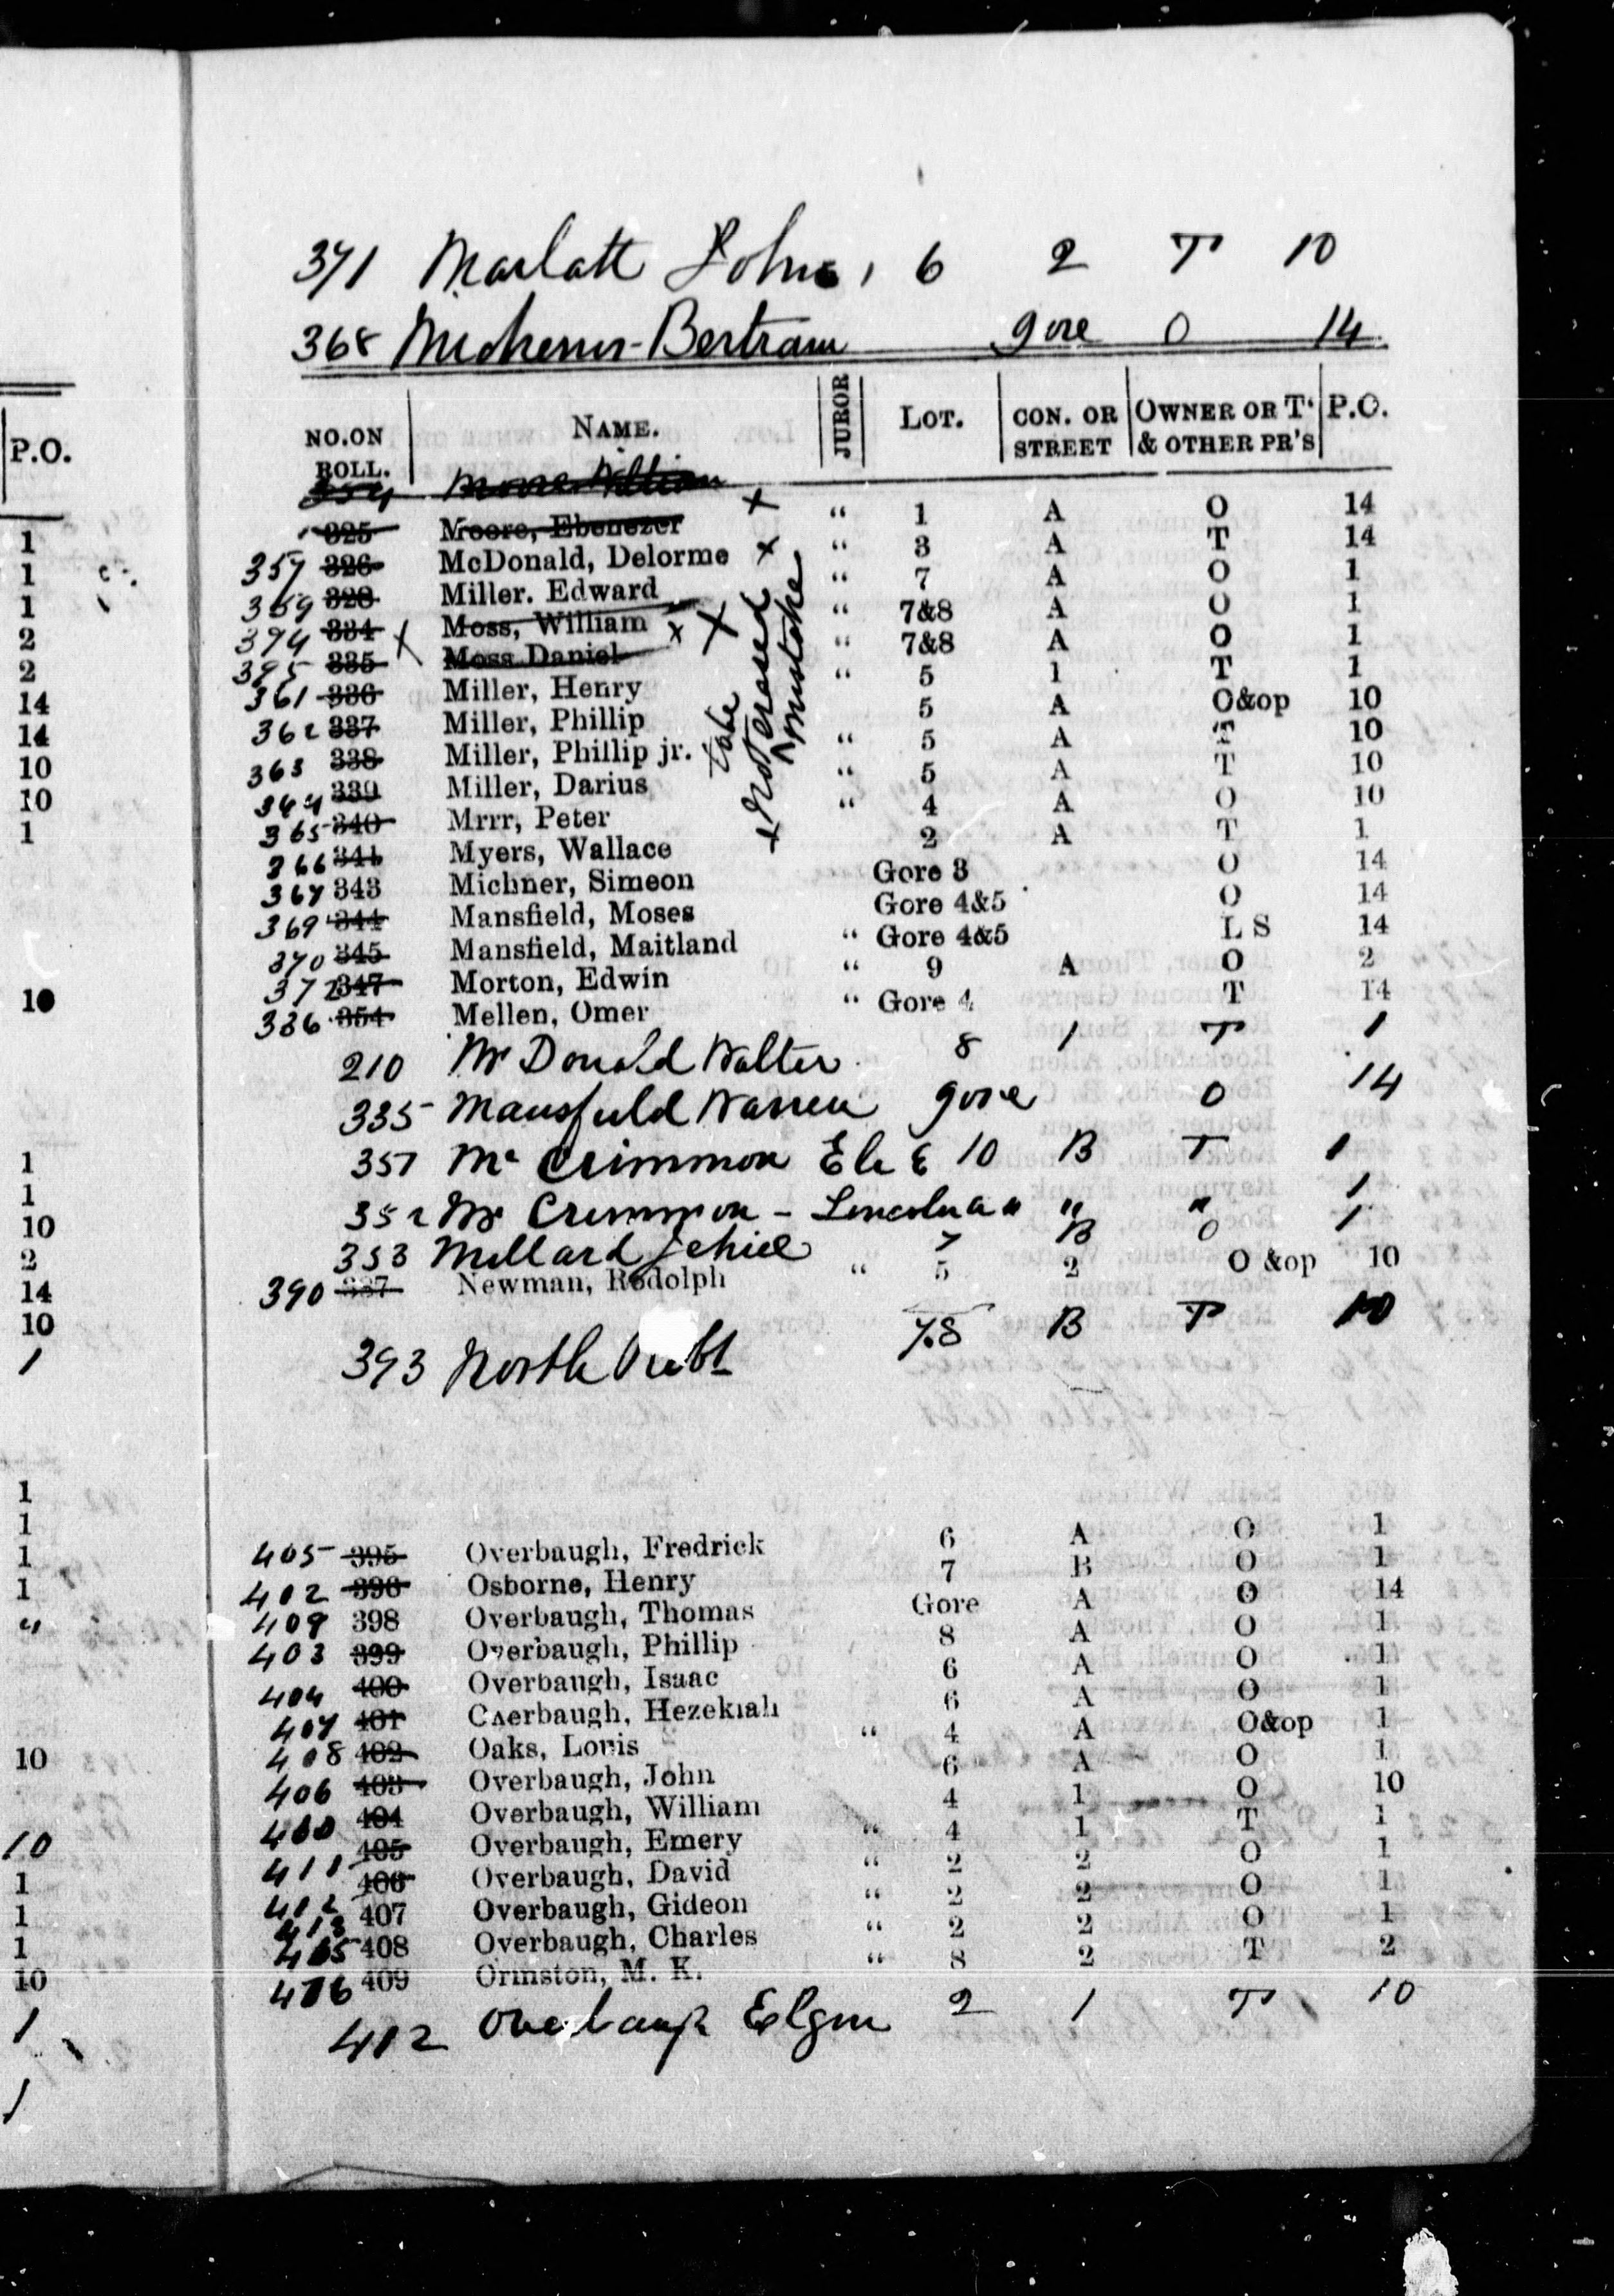 371 Marlatt John, 6 2 T 10
368 Michener Bertram gore O 14
NO. ON ROLL. NAME. JUROR LOT. CON. OR STREET OWNER OR T' & OTHER PR'S P.O.
354 Moore William
325 Moore, Ebenezer x " 1 A O 14
357 326 McDonald, Delorme x " 3 A T 14
359 328 Miller. Edward " 7 A O 1
394 334 x Moss, William x " 7&8 A O 1
395 335 Moss Daniel x " 7&8 A O 1
361 336 Miller, Henry " 5 1 T 1
362 337 Miller, Phillip 5 A O&op 10
363 338 Miller, Phillip jr. " 5 A T 10
364 339 Miller, Darius " 5 A T 10
365 340 Mrrr, Peter " 4 A O 10
366 341 Myers, Wallace 2 A T 1
367 343 Michner, Simeon Gore 3 O 14
369 344 Mansfield, Moses Gore 4&5 O 14
370 345 Mansfield, Maitland " Gore 4&5 L S 14
372 347 Morton, Edwin " 9 A O 2
386 354 Mellen, Omer " Gore 4 T 14
x Not to be erased mistake
210 Mc Donald Walter 8 1 T 1
335 Mansfield Warren gore O 14
351 Mc Crimmon 10 B T 1
352 Mc Crimmon - Lincoln " " " 1
353 Millard Jehiel 7 B O 1
390 387 Newman, Rodolph " 5 2 O &op 10
393 North 7.8 B T 10
405 395 Overbaugh, Fredrick 6 A O 1
402 396 Osborne, Henry 7 B O 1
409 398 Overbaugh, Thomas Gore A O 14
403 399 Overbaugh, Phillip 8 A O 1
404 400 Overbaugh, Isaac 6 A O 1
407 401 Cverbaugh, Hezekiah 6 A O 1
408 402 Oaks, Louis " 4 A O&op 1
406 403 Overbaugh, John 6 A O 1
400 404 Overbaugh, William 4 1 O 10
411 405 Overbaugh, Emery " 4 1 T 1
412 406 Overbaugh, David " 2 2 O 1
413 407 Overbaugh, Gideon " 2 2 O 1
415 408 Overbaugh, Charles " 2 2 O 1
416 409 Ormston, M. K. " 8 2 T 2
412 Overbaugh Elgin 2 1 T 10
P.O.
1
1
1
2
2
14
14
10
10
1
10
1
1
10
2
14
10
1
1
1
1
1
"
10
10
1
1
1
10
1
1